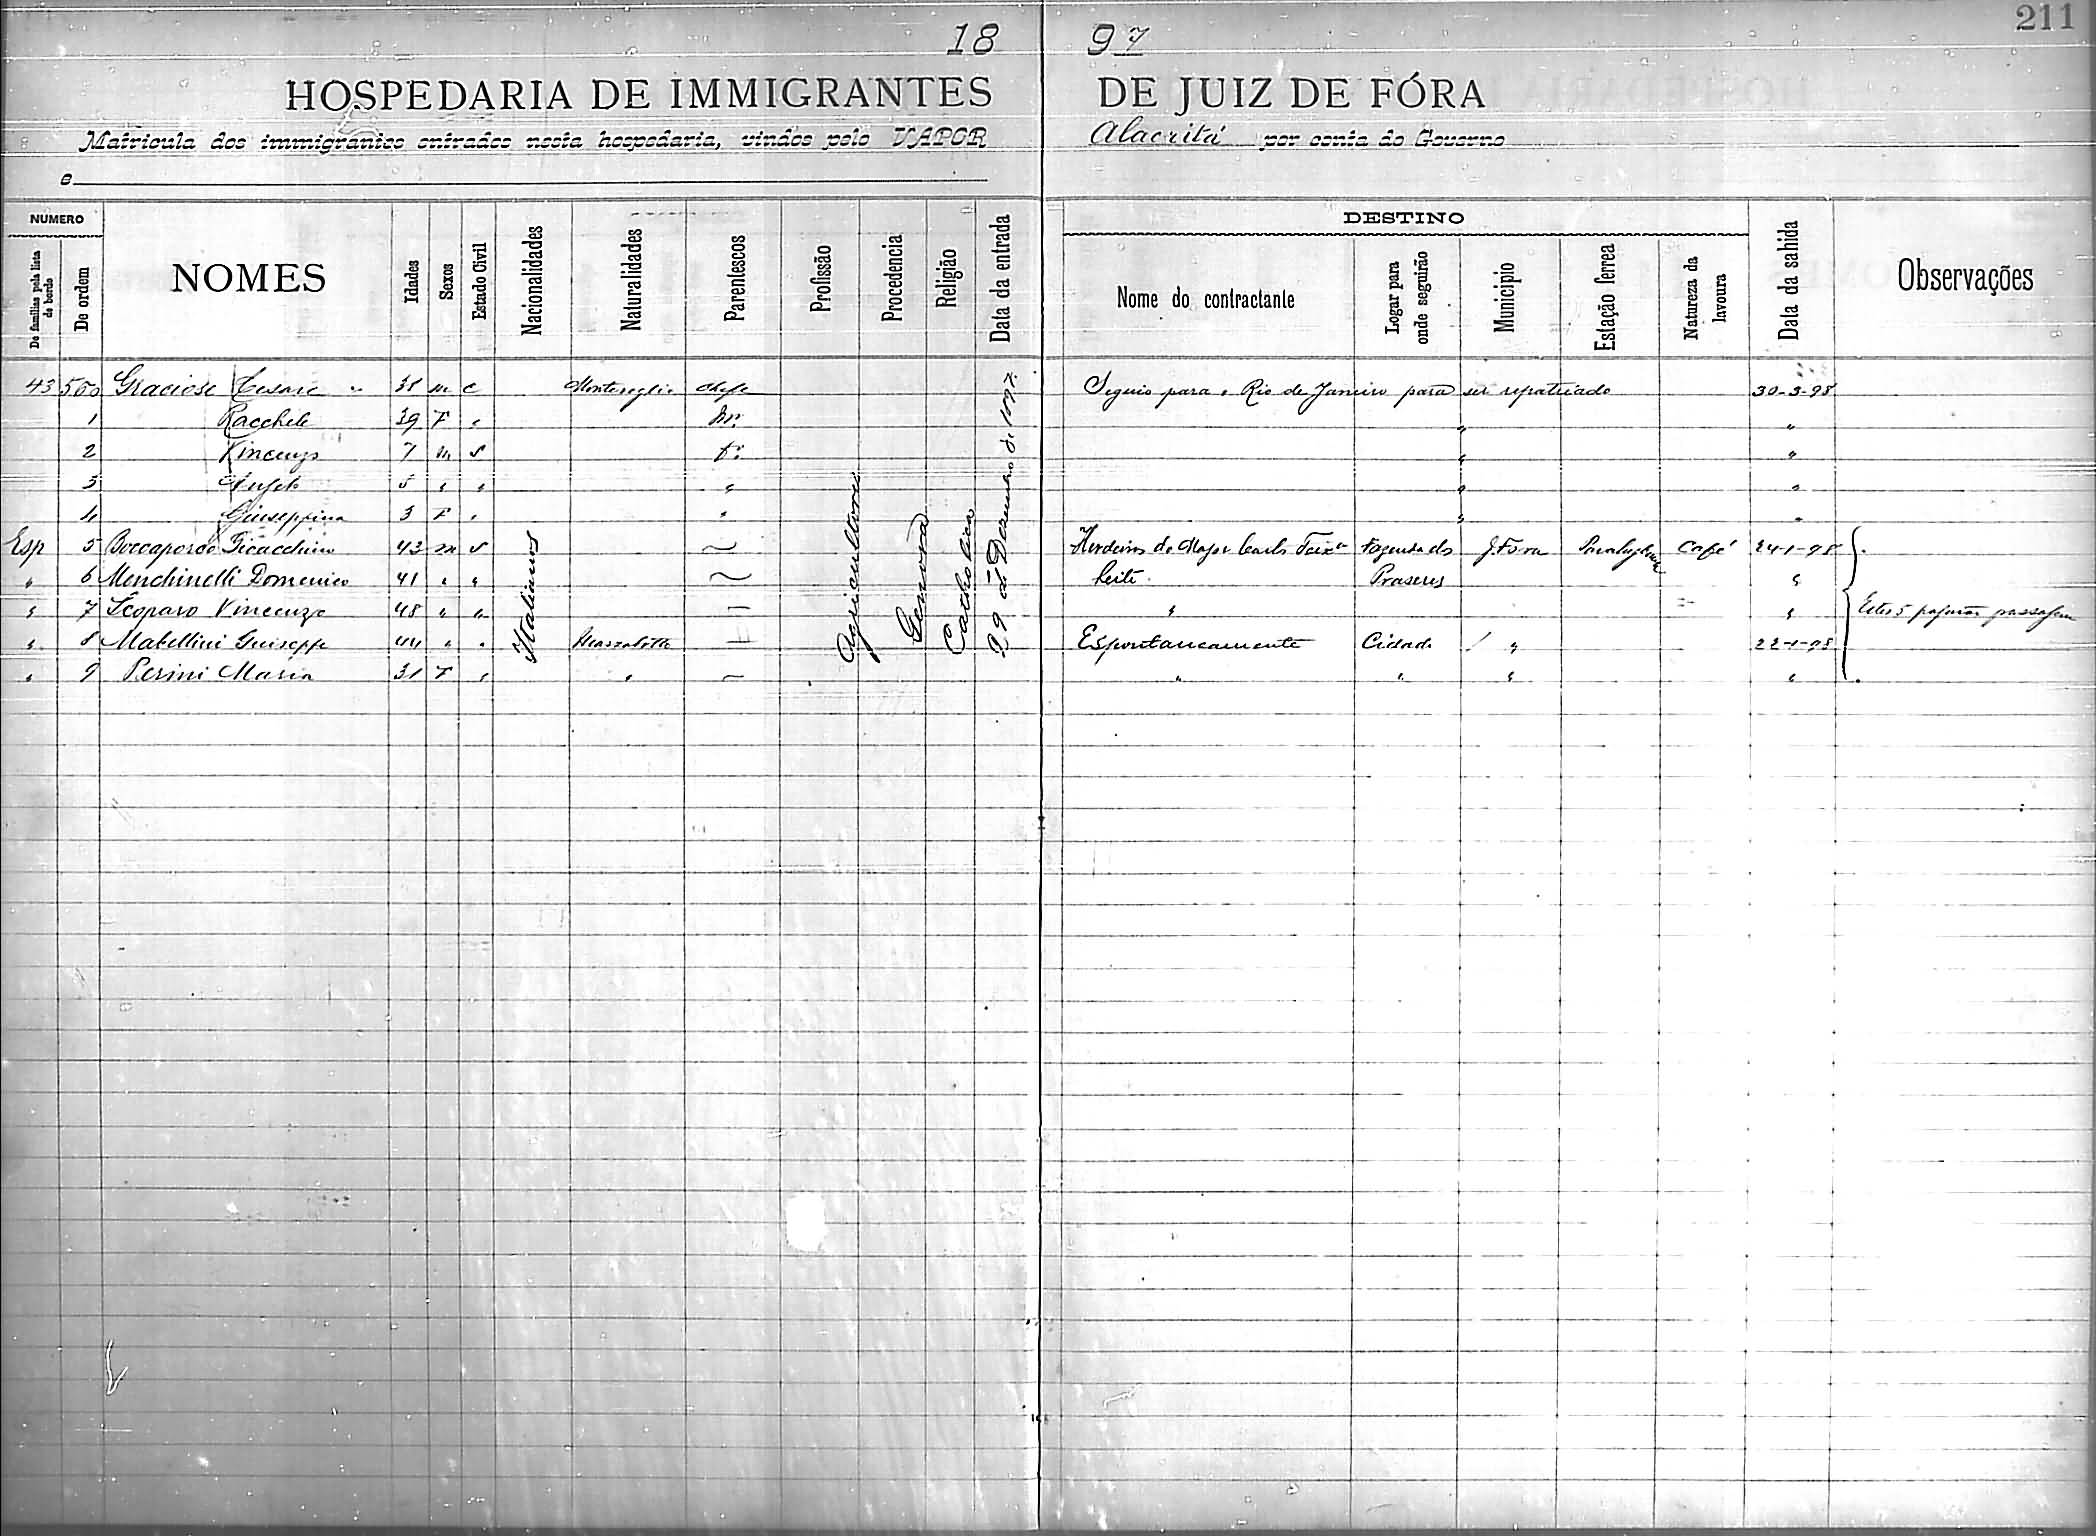 211
18 97
HOSPEDARIA DE IMMIGRANTES DE JUIZ DE FÓRA
Matricula dos immigrantes entrados nesta hospedaria, vindos pelo VAPOR Alacritá por conta do Governo
e
NUMERO
De familias pela lista de bordo
De ordem
NOMES
Idades
Sexos
Estado Civil
Nacionalidades
Naturalidades
Parentescos
Profissão
Procedencia
Religião
Data da entrada
DESTINO
Nome do contractante
Logar para onde seguirão
Municipio
Estação ferrea
Natureza da lavoura
Data da sahida
Observações
43 550 Graciose Cesare 38 m c chefe Seguio para o Rio de Janeiro para ser repatriado 30-3-98
1 Racchele 39 F " mr " "
2 Vincenzo 7 m s fo " "
3 Angelo 5 " " " " "
4 Giuseppina 3 F " " " "
Esp 5 43 m s Herdeiros do Major Carlos Teixra Fazenda dos J. Fora Café 24-1-98
" 6 Menchinelli Domenico 41 " " Leite Praseres "
" 7 Scoparo Vincenzo 48 " " " " Estes 5 pagarão passagem
" 8 Mabellini Guiseppe 44 " " Espontaneamente Cidade " 22-1-98
" 9 Persini Maria 31 F " " " " " "
Italianos
Agricultores
Genova
Catholica
29 de Dezembro de 1897